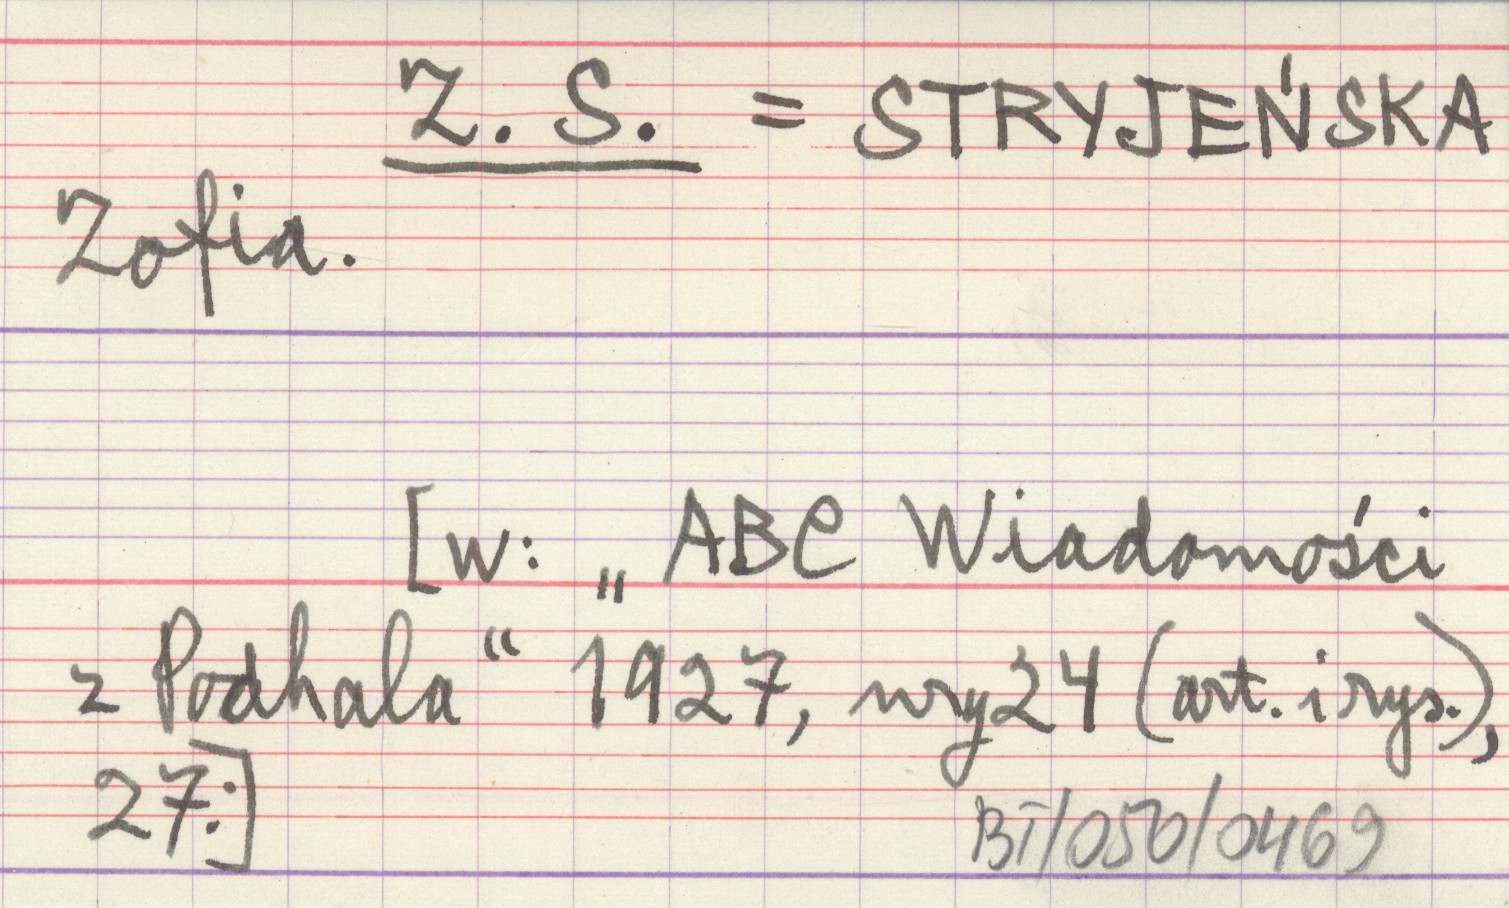 Z. S. = STRYJEŃSKA
Zofia.
[w: „ABC Wiadomości
z Podhala“ 1927, nry 24 (art. i rys.),
27:]
BT/050/0469